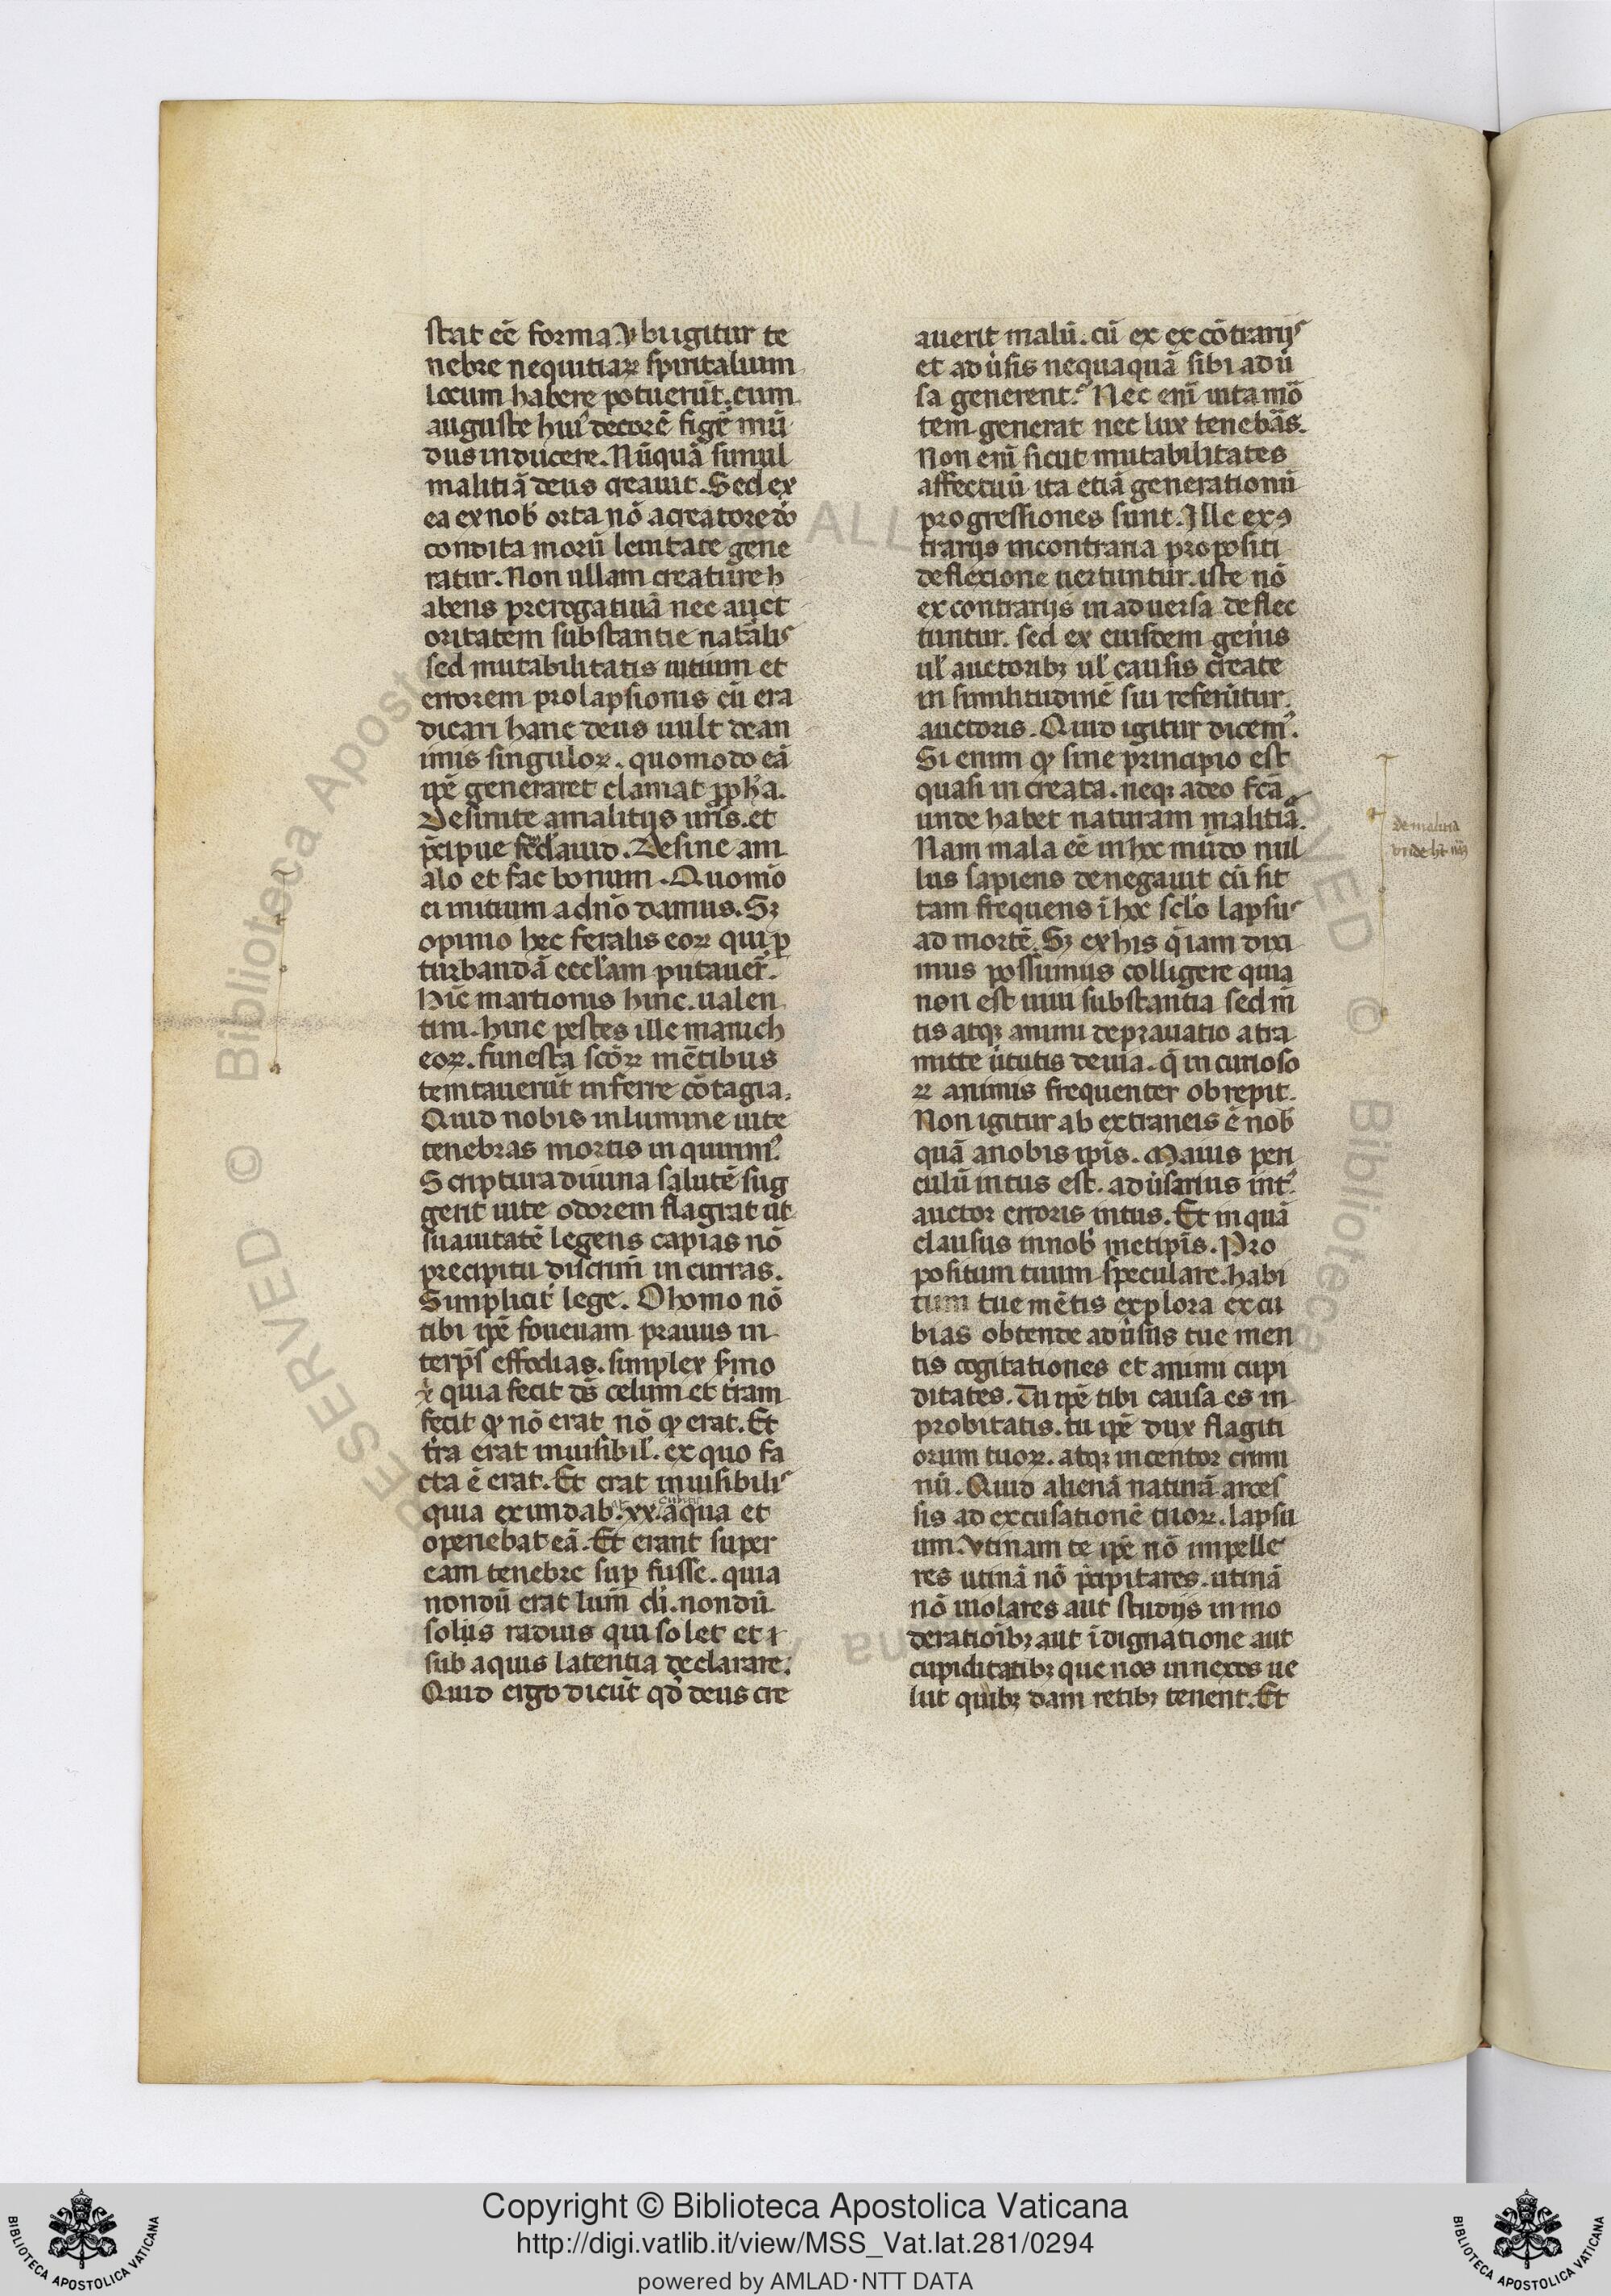 stat eē forma. Vbi igitur te
nebre nequitiaꝝ spiritalium
locum habere potuerūt. cum
auguste huiꝰ decorē fige᷑ mū
dus induceret. Nūquā simul
malitiā deus creauit. Sed ex
ea ex nob̄ orta nō a creatore dō
condita morū leuitate gene
ratur. Non ullam creature h
abens prerogatiuā nec auct
oritatem substantie natālis
sed mutabilitatis uitium et
errorem prolapsionis cū era
dicari hanc deus uult de an
imis singuloꝝ. quomodo eā
ip̄e generaret clamat ꝓph̄a.
Desinite a malitijs ur̄is. et
p̄cipue sc̄s dauid. Desine a m
alo et fac bonum. Quomō
ei initium a dn̄o damus. Sꝫ
opinio hec feralis eoꝝ qui ꝑ
turbandā eccl̄am putauer̄.
Hīc martionis hinc. ualen
tini. hinc pestes ille manich
eoꝝ. funesta sc̄oꝝ mētibus
temtauerūt inferre cōtagia.
Quid nobis in lumine uite
tenebras mortis inquirimꝰ
Scriptura diuina salutē sug
gerit uite odorem flagrat ut
suauitatē legens capias nō
precipitii discrim̄ incurras.
Simplicit̄ lege. O homo nō
tibi ip̄e foueuam prauus in
terp̄s effodias. simplex s̄mo
ē quia fecit ds̄ celum et t̄ram
fecit qꝫ nō erat nō qꝫ erat. Et
t̄ra erat inuisibil̄. ex quo fa
cta ē erat. Et erat inuisibilis
quia exundabat. xx. cubitis aqua et
operiebat eā. Et erant super
eam tenebre suꝑ fusse. quia
nondū erat lum̄ di. nondū
solius radius qui solet et ı
sub aquis latentia declarare.
Quid ergo dicūt qd̄ deus cre
auerit malū. cū ex ex cōtrarijs
et adūsis nequaquā sibi adū
sa generent᷑. Nec enī uita mō
tem generat nec lux tenebās.
Non enī sicut mutabilitates
affectuū ita etiā generationū
progressiones sunt. Ille ex ꝯ
trarijs in contraria propositi
deflexione uertuntur. iste nō
ex contrarijs in aduersa deflec
tuntur. sed ex euisdem gen̄is
ul̄ auctoribꝫ ul̄ causis create
in similitudinē sui referūtur
auctoris. Quid igitur dicemꝰ.
Si enim qꝫ sine principio est
quasi increata. neqꝫ a deo fc̄ā
unde habet naturam malitiā.
Nam mala eē in hoc mūdo nul
lus sapiens denegauit cū sit
tam frequens ī hoc sclo lapsus
ad mortē. Sꝫ ex his q̄ iam dixi
mus possumus colligere quia
non est uiui substantia sed m̄
tis atqꝫ animi deprauatio a tra
mitte ūtutis deuia. q̄ incurioso
ꝝ animis frequenter obrepit.
Non igitur ab extraneis ē nob̄
quā a nobis ip̄is. Maius peri
culū intus est. adūsarius intꝰ.
auctor erroris intus. Et inquā
clausus in nob̄ metip̄is. Pro
positum tuum speculare. habi
tum tue mētis explora excu
bias obtende adūsus tue men
tis cogitationes et animi cupi
ditates. Tu ip̄e tibi causa es in
probitatis. tu ip̄e dux flagiti
orum tuoꝝ. atqꝫ incentor crimi
nū. Quid alienā naturā arces
sis ad excusationē tuoꝝ. lapsu
um. Vtinam te ip̄e nō impelle
res utinā nō p̄cipitares. utinā
nō inolares aut studijs inmo
deratioībꝫ aut īdignatione aut
cupiditatibꝫ que nos innexos ue
lut quibꝫdam retibꝫ tenent. Et
de malitia